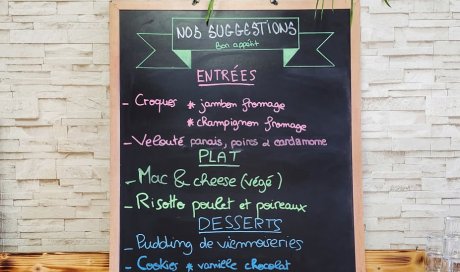 NOS SUGGESTIONS
Bon appétit
ENTRÉES
- Croques * jambon fromage
* champignon fromage
- Velouté panais, poires & cardamome
PLAT
- Mac & cheese (végé)
- Risotto poulet et poireaux
DESSERTS
- Pudding de viennoiseries
- Cookies * vanille chocolat